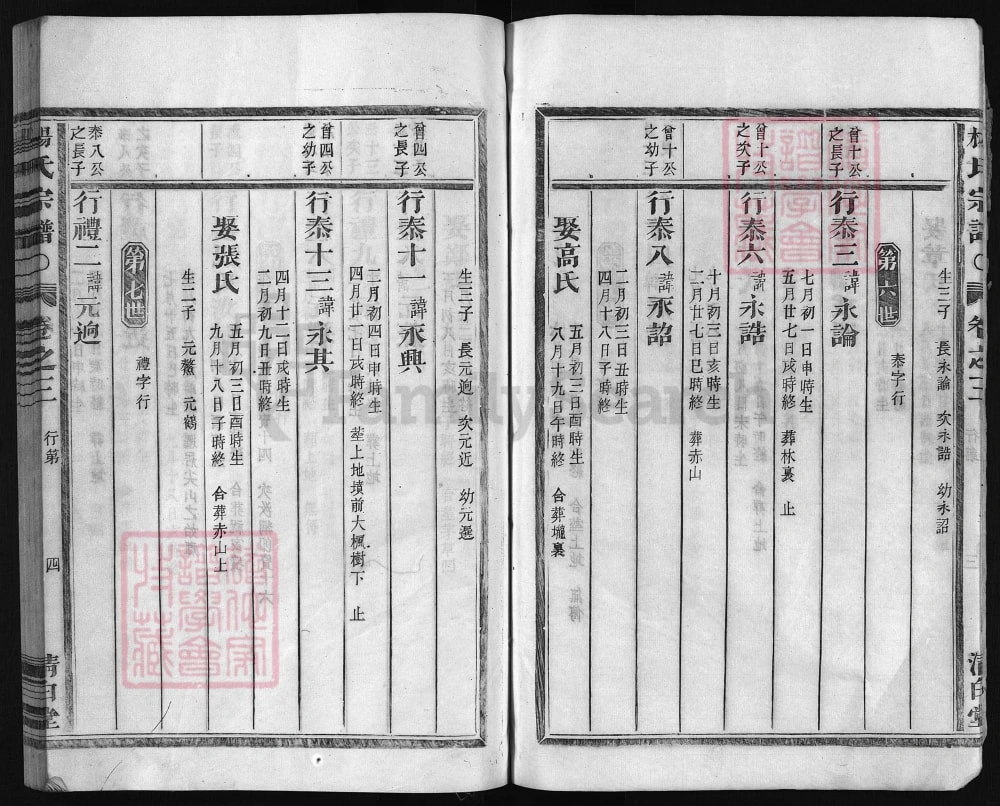 楊氏宗譜 卷之三 三 清白堂
生三子 長永論 次永誥 幼永詔
第六世 泰字行
曾十公之長子
行泰三 諱永論
七月初一日申時生
五月廿七日戌時終 葬林裏 止
曾十公之次子
行泰六 諱永誥
十月初三日亥時生
二月廿七日巳時終 葬赤山
曾十公之幼子
行泰八 諱永詔
二月初三日丑時生
四月十八日子時終
娶高氏
五月初三日酉時生
八月十九日午時終 合葬壠裏
生三子 長元逈 次元近 幼元選
曾四公之長子
行泰十一 諱永興
二月初四日申時生
四月廿一日戌時終 塟上地墳前大楓樹下 止
曾四公之幼子
行泰十三 諱永其
四月十二日戌時生
二月初九日丑時終
娶張氏
五月初三日酉時生
九月十八日子時終 合葬赤山上
生二子 元鰲 元鶴
第七世 禮字行
泰八公之長子
行禮二 諱元逈
楊氏宗譜 卷之三 行第 四 清白堂
FamilySearch